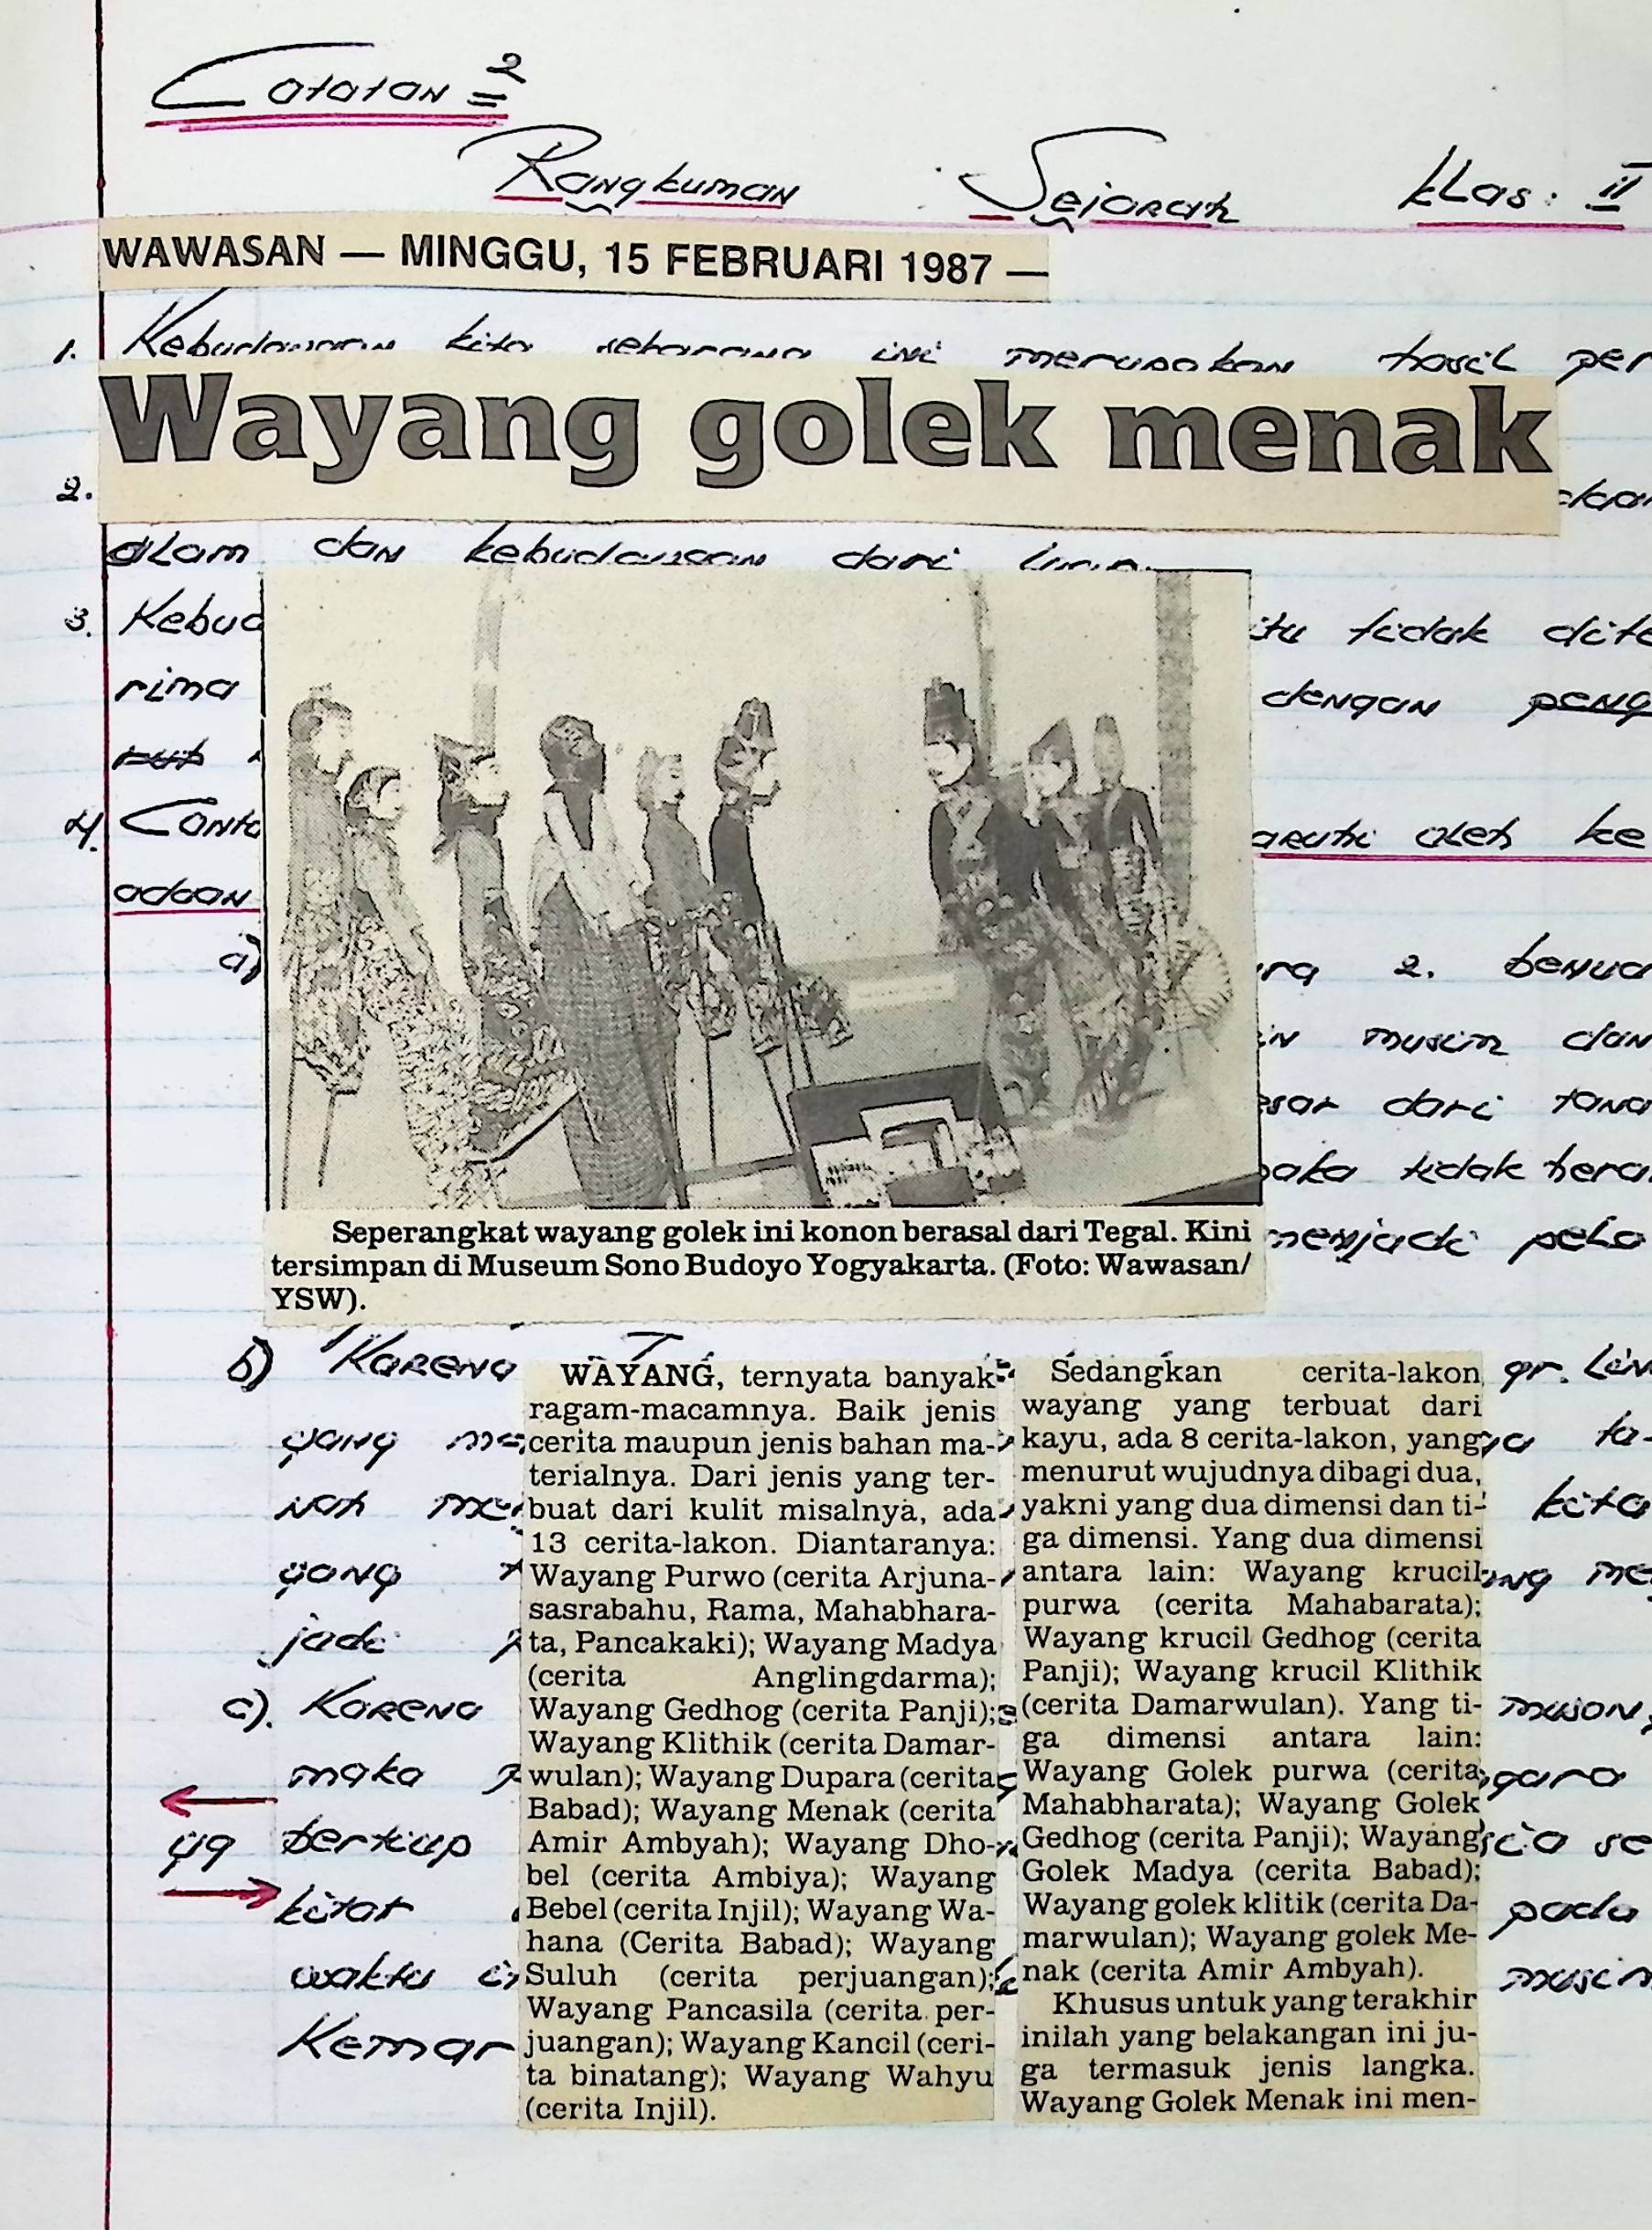 Catatan = 2
Rangkuman Sejarah klas: II
WAWASAN — MINGGU, 15 FEBRUARI 1987 —
1. Kebudayaan kita sekarang ini merupakan hasil per
Wayang golek menak
2.
alam dan kebudayaan dari luar
3. Kebud itu tidak dite
rima dengan peng
4. Conto aruhi oleh ke
adaan
a) ara 2. benua
in musim dan
esar dari tana
menjadi pela
Seperangkat wayang golek ini konon berasal dari Tegal. Kini
tersimpan di Museum Sono Budoyo Yogyakarta. (Foto: Wawasan/
YSW).
b) Karena
yang
nah
yang
jadi
c). Karena
maka
yg
kitar
waktu
Kemar
WAYANG, ternyata banyak
ragam-macamnya. Baik jenis
cerita maupun jenis bahan ma-
terialnya. Dari jenis yang ter-
buat dari kulit misalnya, ada
13 cerita-lakon. Diantaranya:
Wayang Purwo (cerita Arjuna-
sasrabahu, Rama, Mahabhara-
ta, Pancakaki); Wayang Madya
(cerita Anglingdarma);
Wayang Gedhog (cerita Panji);
Wayang Klithik (cerita Damar-
wulan); Wayang Dupara (cerita
Babad); Wayang Menak (cerita
Amir Ambyah); Wayang Dho-
bel (cerita Ambiya); Wayang
Bebel (cerita Injil); Wayang Wa-
hana (Cerita Babad); Wayang
Suluh (cerita perjuangan);
Wayang Pancasila (cerita per-
juangan); Wayang Kancil (ceri-
ta binatang); Wayang Wahyu
(cerita Injil).
Sedangkan cerita-lakon
wayang yang terbuat dari
kayu, ada 8 cerita-lakon, yang
menurut wujudnya dibagi dua,
yakni yang dua dimensi dan ti-
ga dimensi. Yang dua dimensi
antara lain: Wayang krucil
purwa (cerita Mahabarata);
Wayang krucil Gedhog (cerita
Panji); Wayang krucil Klithik
(cerita Damarwulan). Yang ti-
ga dimensi antara lain:
Wayang Golek purwa (cerita
Mahabharata); Wayang Golek
Gedhog (cerita Panji); Wayang
Golek Madya (cerita Babad);
Wayang golek klitik (cerita Da-
marwulan); Wayang golek Me-
nak (cerita Amir Ambyah).
Khusus untuk yang terakhir
inilah yang belakangan ini ju-
ga termasuk jenis langka.
Wayang Golek Menak ini men-
kita
pada